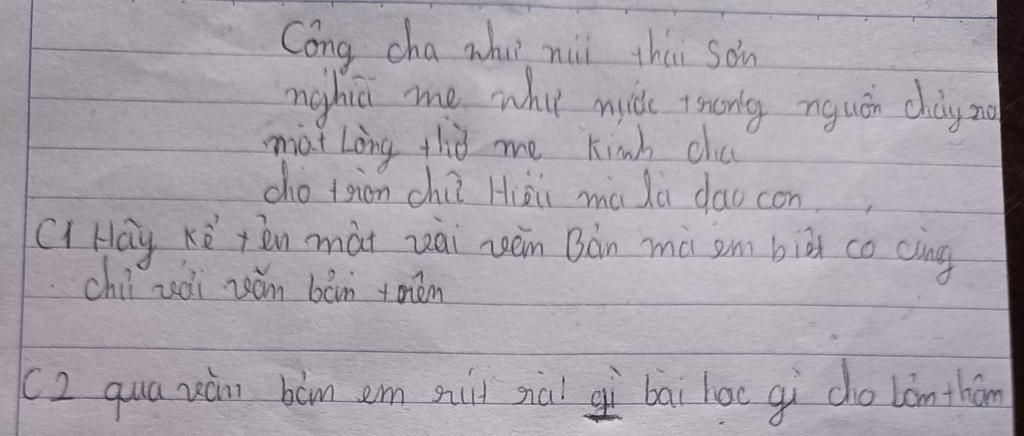 Công cha như núi thái Sơn
nghĩa mẹ như nước trong nguồn chảy ra
một Lòng thờ mẹ Kính cha
cho tròn chữ Hiếu mới là đạo con
C1 Hãy kể tên một vài văn Bản mà em biết có cùng
chủ với văn bản trên
C2 qua văn bản em rút ra gì bài học gì cho bản thân